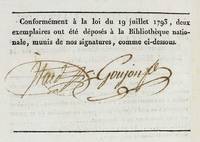 Conformément à la loi du 19 juillet 1793, deux
exemplaires ont été déposés à la Bibliothèque natio-
nale, munis de nos signatures, comme ci-dessous.
Goujon